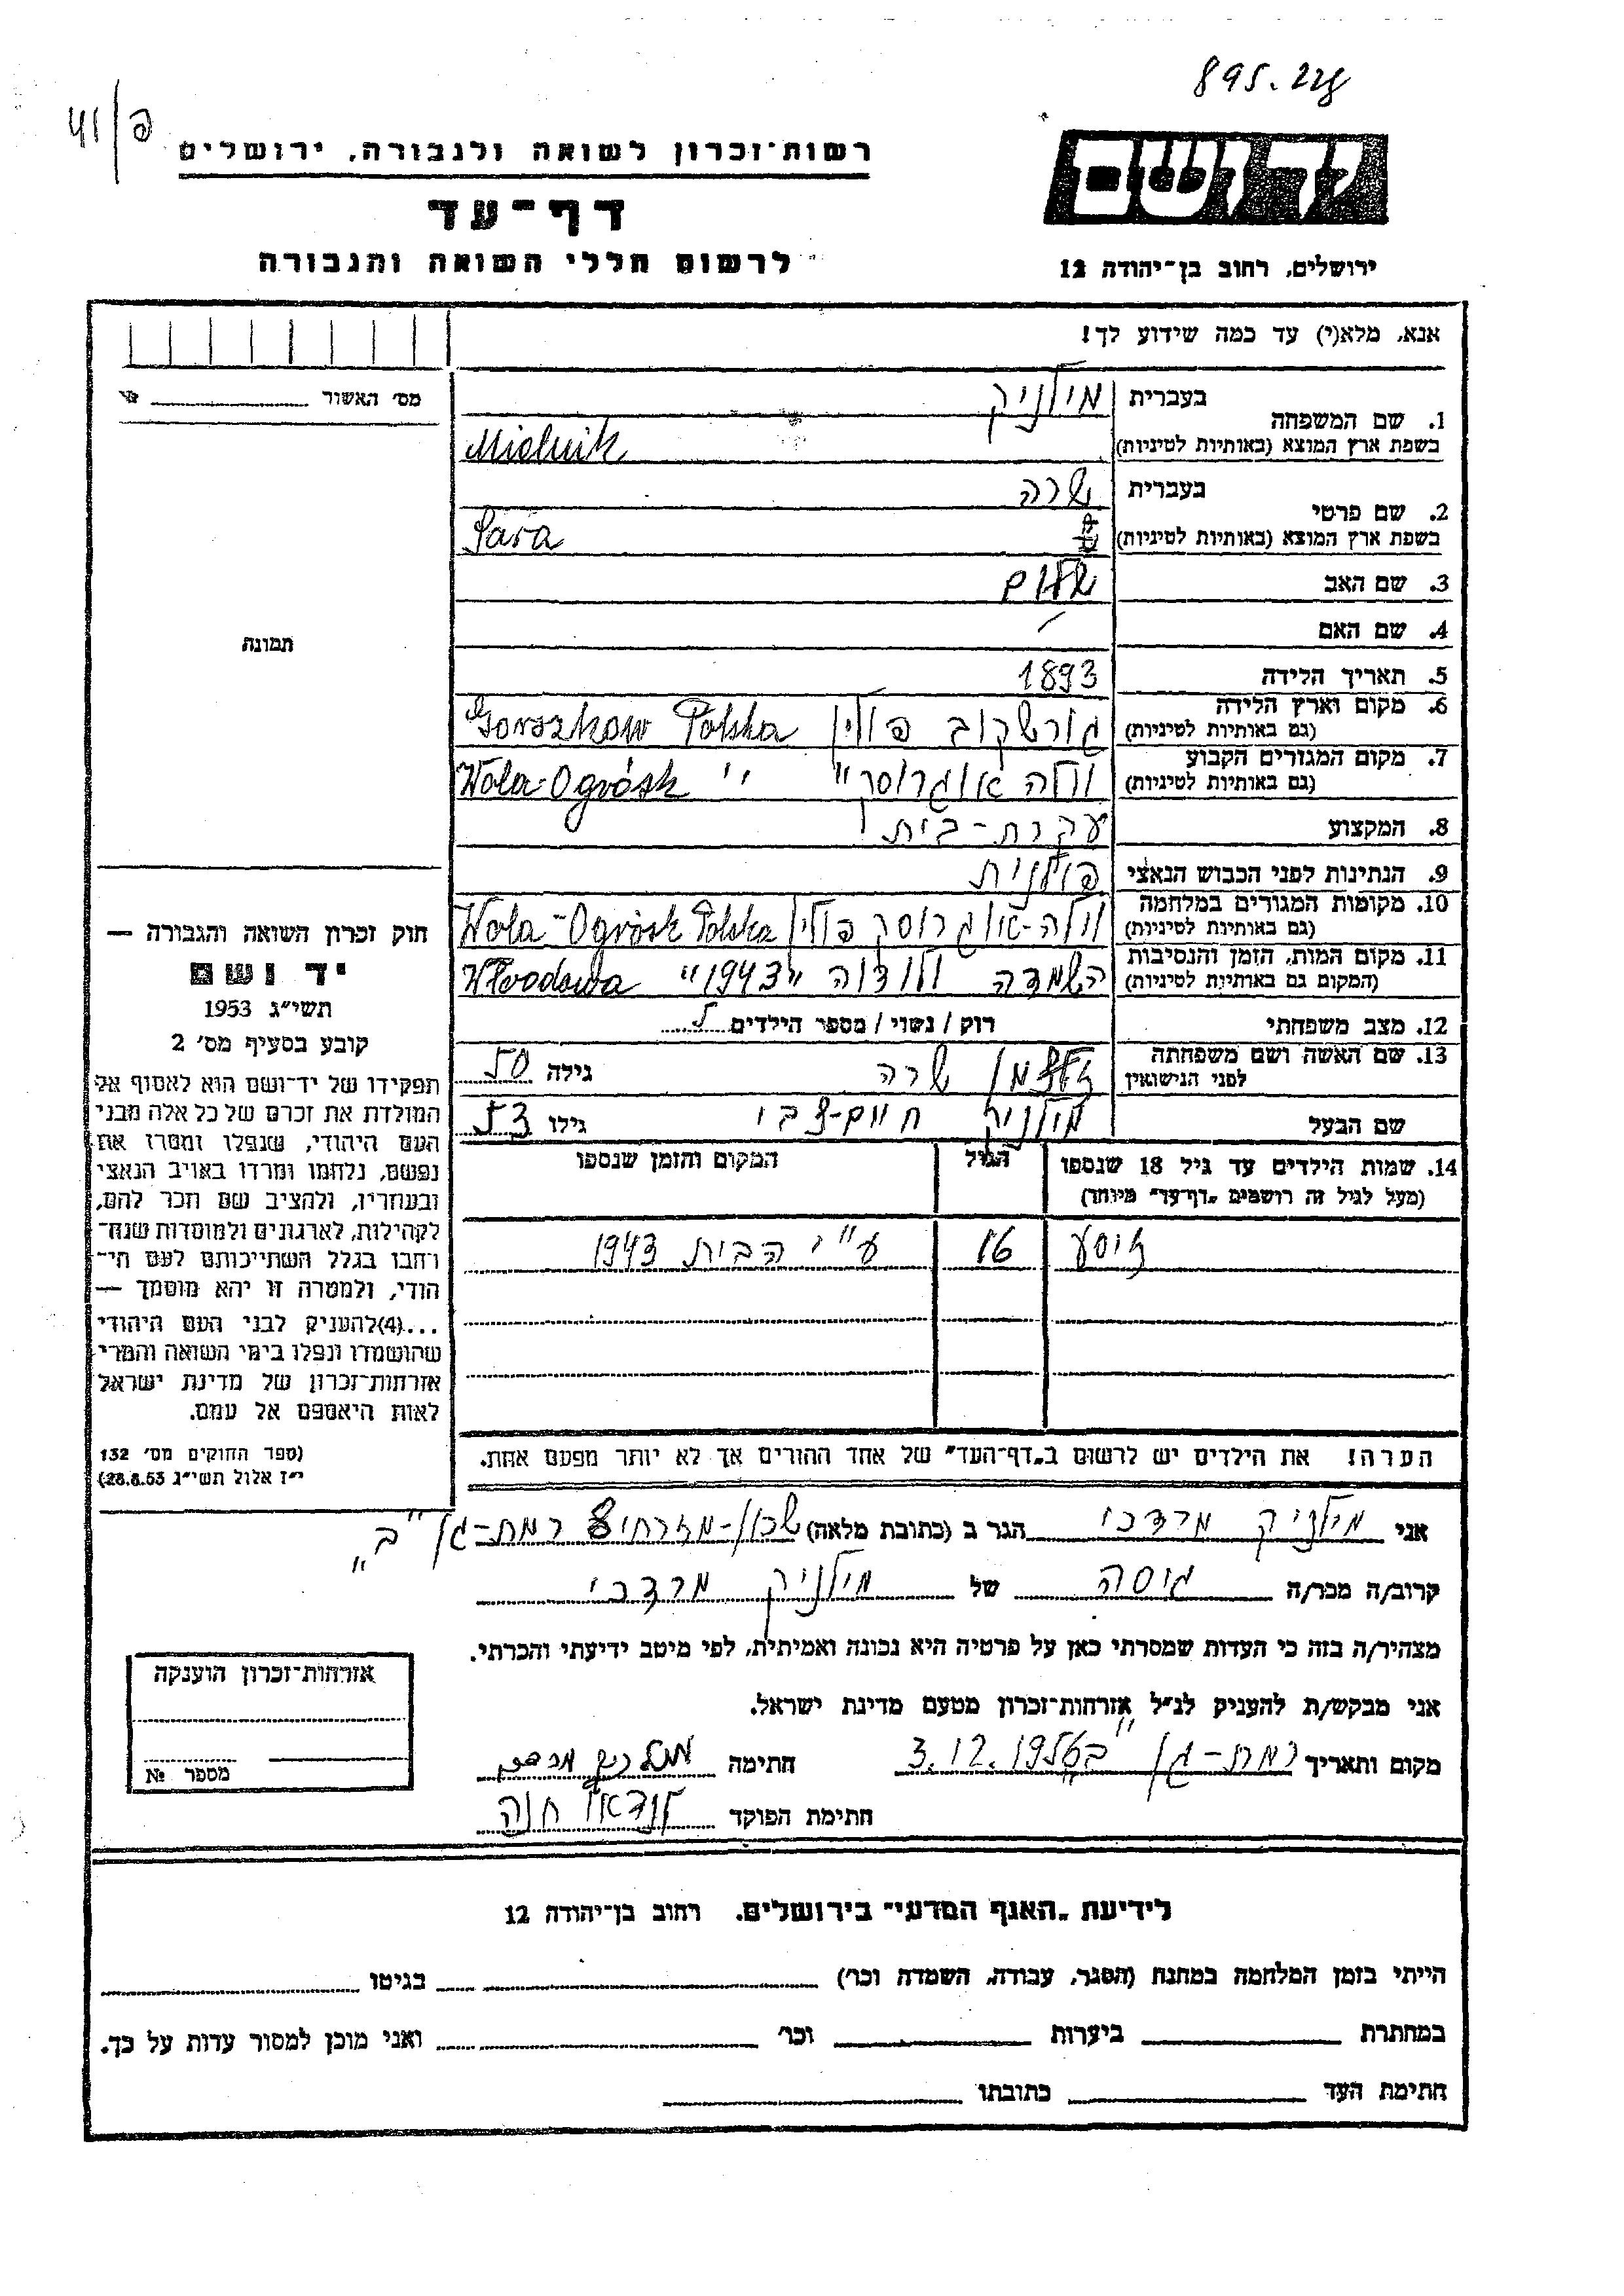 895. 228
41/פ
יד ושם
רשות-זכרון לשואה ולגבורה, ירושלים
דף-עד
לרשום חללי השואה והגבורה
ירושלים, רחוב בן-יהודה 12
אנא, מלא(י) עד כמה שידוע לך!
מס' האשור № 
1. שם המשפחה בעברית מילניק
בשפת ארץ המוצא (באותיות לטיניות) Mielnik
2. שם פרטי בעברית שרה
בשפת ארץ המוצא (באותיות לטיניות) Sara
3. שם האב שלום
4. שם האם -
תמונה
5. תאריך הלידה 1893
6. מקום וארץ הלידה (גם באותיות לטיניות) גורשקוב פולין Gorszkow Polska
7. מקום המגורים הקבוע (גם באותיות לטיניות) וולה אוגרוסק " " Wola-Ogrósk
8. המקצוע עקרת-בית
9. הנתינות לפני הכבוש הנאצי פולנית
10. מקומות המגורים במלחמה (גם באותיות לטיניות) וולה-אוגרוסק פולין Wola-Ogrósk Polska
11. מקום המות, הזמן והנסיבות (המקום גם באותיות לטיניות) השמדה ולודוה "1943" Włodowa
12. מצב משפחתי רוק / נשוי / מספר הילדים 5
13. שם האשה ושם משפחתה לפני הנישואין שרה גילה 50
שם הבעל מילניק חיים-צבי גילו 53
14. שמות הילדים עד גיל 18 שנספו הגיל המקום והזמן שנספו
(מעל לגיל זה רושמים "דף-עד" מיוחד)
זיסע 16 ע"י הבית 1943
הערה! את הילדים יש לרשום ב"דף-העד" של אחד ההורים אך לא יותר מפעם אחת.
חוק זכרון השואה והגבורה —
יד ושם
תשי"ג 1953
קובע בסעיף מס' 2
תפקידו של יד-ושם הוא לאסוף אל
המולדת את זכרם של כל אלה מבני
העם היהודי, שנפלו ומסרו את
נפשם, נלחמו ומרדו באויב הנאצי
ובעוזריו, ולהציב שם וזכר להם,
לקהילות, לארגונים ולמוסדות שנח-
רבו בגלל השתייכותם לעם הי-
הודי, ולמטרה זו יהא מוסמך —
...(4)להעניק לבני העם היהודי
שהושמדו ונפלו בימי השואה והמרי
אזרחות-זכרון של מדינת ישראל
לאות היאספם אל עמם.
(ספר החוקים מס' 132
י"ז אלול תשי"ג 28.8.53)
אני מילניק מרדכי הגר ב (כתובת מלאה) שכון-מזרחי רמת-גן "ב"
קרוב/ה מכר/ה גיסה של מילניק מרדכי
מצהיר/ה בזה כי העדות שמסרתי כאן על פרטיה היא נכונה ואמיתית, לפי מיטב ידיעתי והכרתי.
אני מבקש/ת להעניק לנ"ל אזרחות-זכרון מטעם מדינת ישראל.
מקום ותאריך רמת-גן "ב" 3.12.1956 חתימה מילניק מרדכי
חתימת הפוקד לנדאו חנה
אזרחות-זכרון הוענקה
מספר №
לידיעת "האגף המדעי" בירושלים. רחוב בן-יהודה 12
הייתי בזמן המלחמה במחנה (הסגר, עבודה, השמדה וכו') בגיטו
במחתרת ביערות וכו' ואני מוכן למסור עדות על כך.
חתימת העד כתובתו